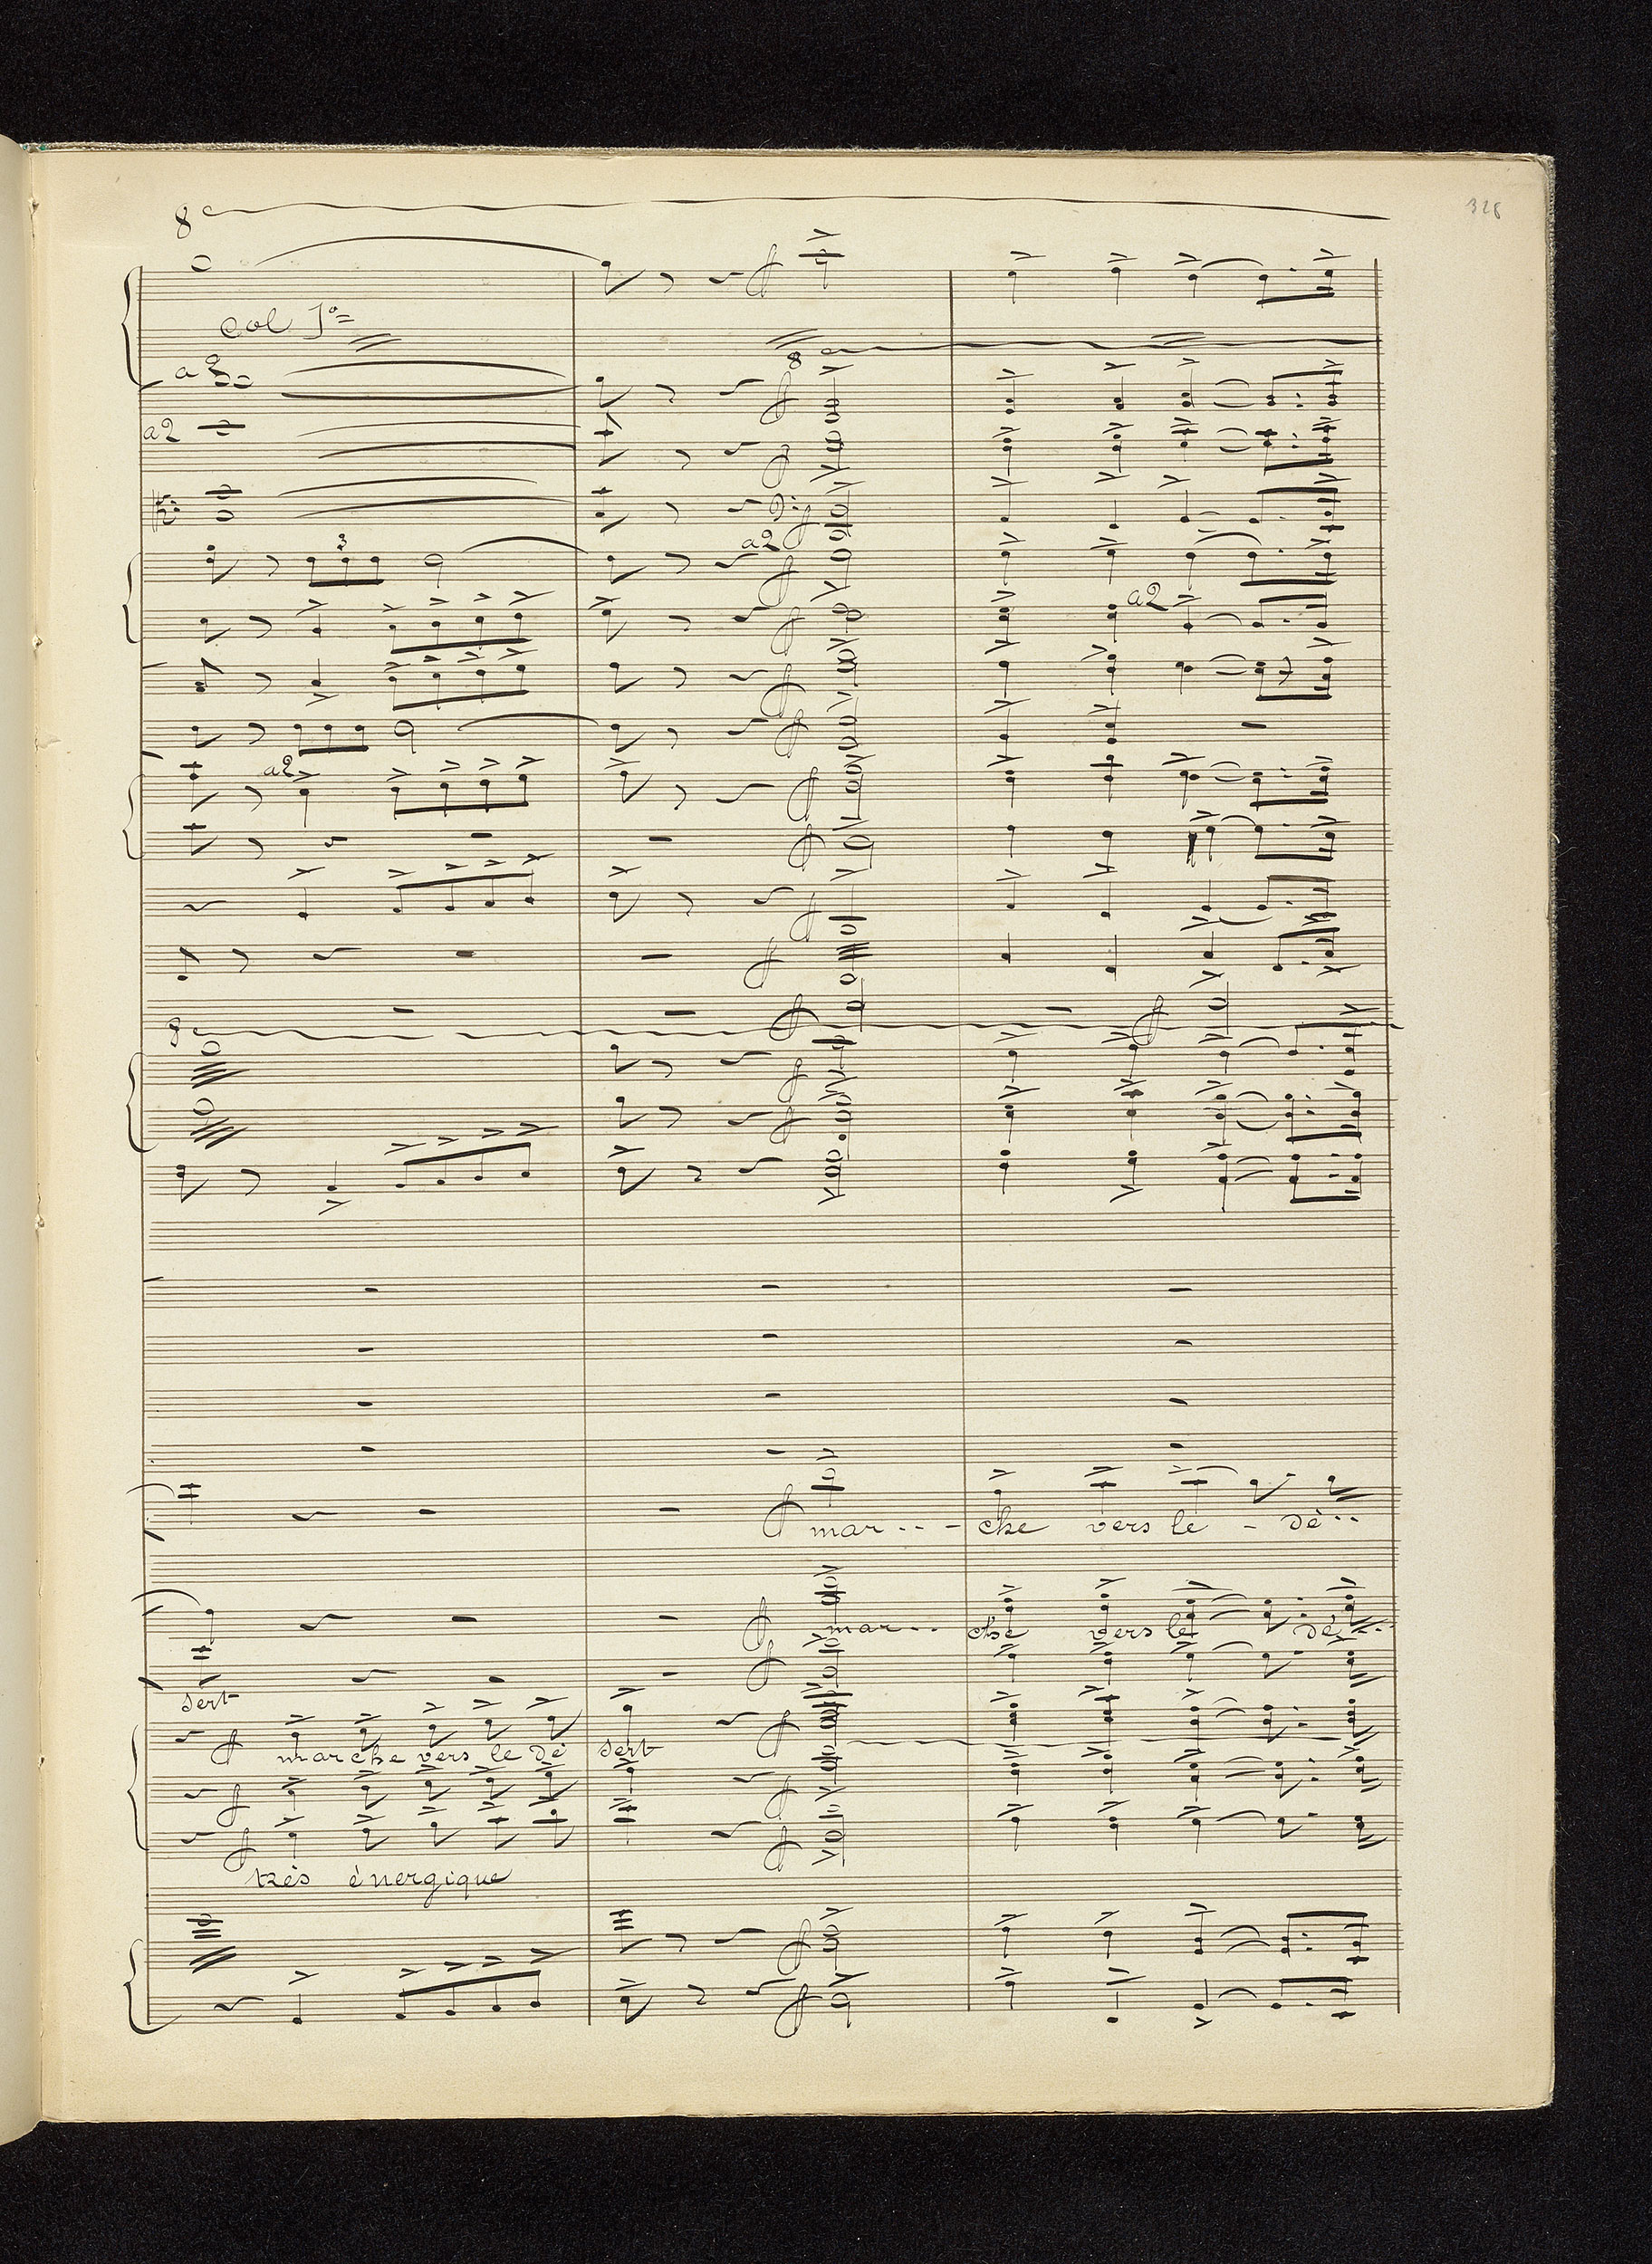 328
8
col Io
a 2
8
a2
3
a2
a2
a2
8
mar - - - che vers le - dè - -
mar - - che vers le dè - -
sert
marche vers le dè sert
très ènergique